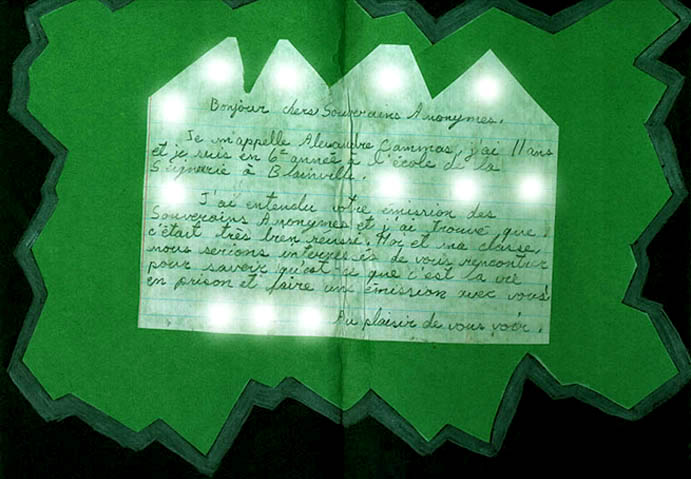 Bonjour chers Souverains Anonymes,
Je m'appelle Alexandre Cammas, j'ai 11 ans
et je suis en 6e année à l'école de la
Seigneurie à Blainville.
J'ai entendu votre émission des
Souverains Anonymes et j'ai trouvé que
c'était très bien réussi. Moi et ma classe,
nous serions intéressés de vous rencontrer
pour savoir qu'est-ce que c'est la vie
en prison et faire une émission avec vous.
Au plaisir de vous voir.